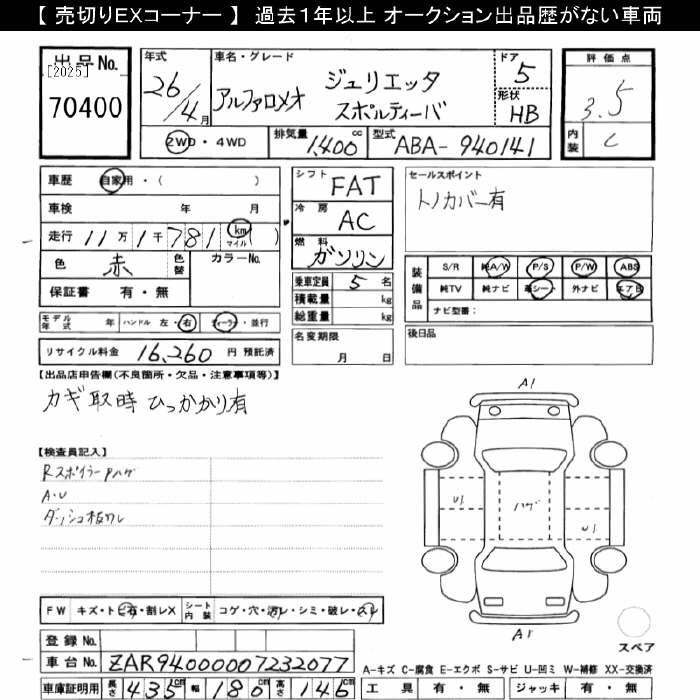 【 売切りEXコーナー 】 過去1年以上 オークション出品歴がない車両
出品No.
[2025]
70400
年式
26/4月
車名・グレード
アルファロメオ ジュリエッタ
スポルティーバ
ドア
5
形状
HB
評価点
3.5
内装
C
2WD・4WD
排気量 1,400 cc
型式 ABA-940141
車歴 自家用・( )
車検 年 月
走行 11万1千781 km マイル ( )
色 赤 色替 カラーNo.
保証書 有・無
シフト FAT
冷房 AC
燃料 ガソリン
乗車定員 5 名
積載量 kg
総重量 kg
セールスポイント
トノカバー有
装備品
S/R 純A/W P/S P/W ABS
純TV 純ナビ 革シート 外ナビ エアB
ナビ型番:
モデル年式 年 ハンドル 左・右 ディーラー・並行
リサイクル料金 16,260 円 預託済
名変期限
月 日
後日品
【出品店申告欄(不良箇所・欠品・注意事項等)】
カギ取時ひっかかり有
【検査員記入】
Rスポイラー Pハゲ
A・U
ダッシュ板ワレ
A1
U1
ハゲ
U1
A1
スペア
FW キズ・トビ石・割レX
シート内装 コゲ・穴・汚レ・シミ・破レ・スレ
登録No.
車台No. ZAR94000007232077
車庫証明用 長さ 435 cm 幅 180 cm 高さ 146 cm
A-キズ C-腐食 E-エクボ S-サビ U-凹ミ W-補修 XX-交換済
工具 有・無 ジャッキ 有・無